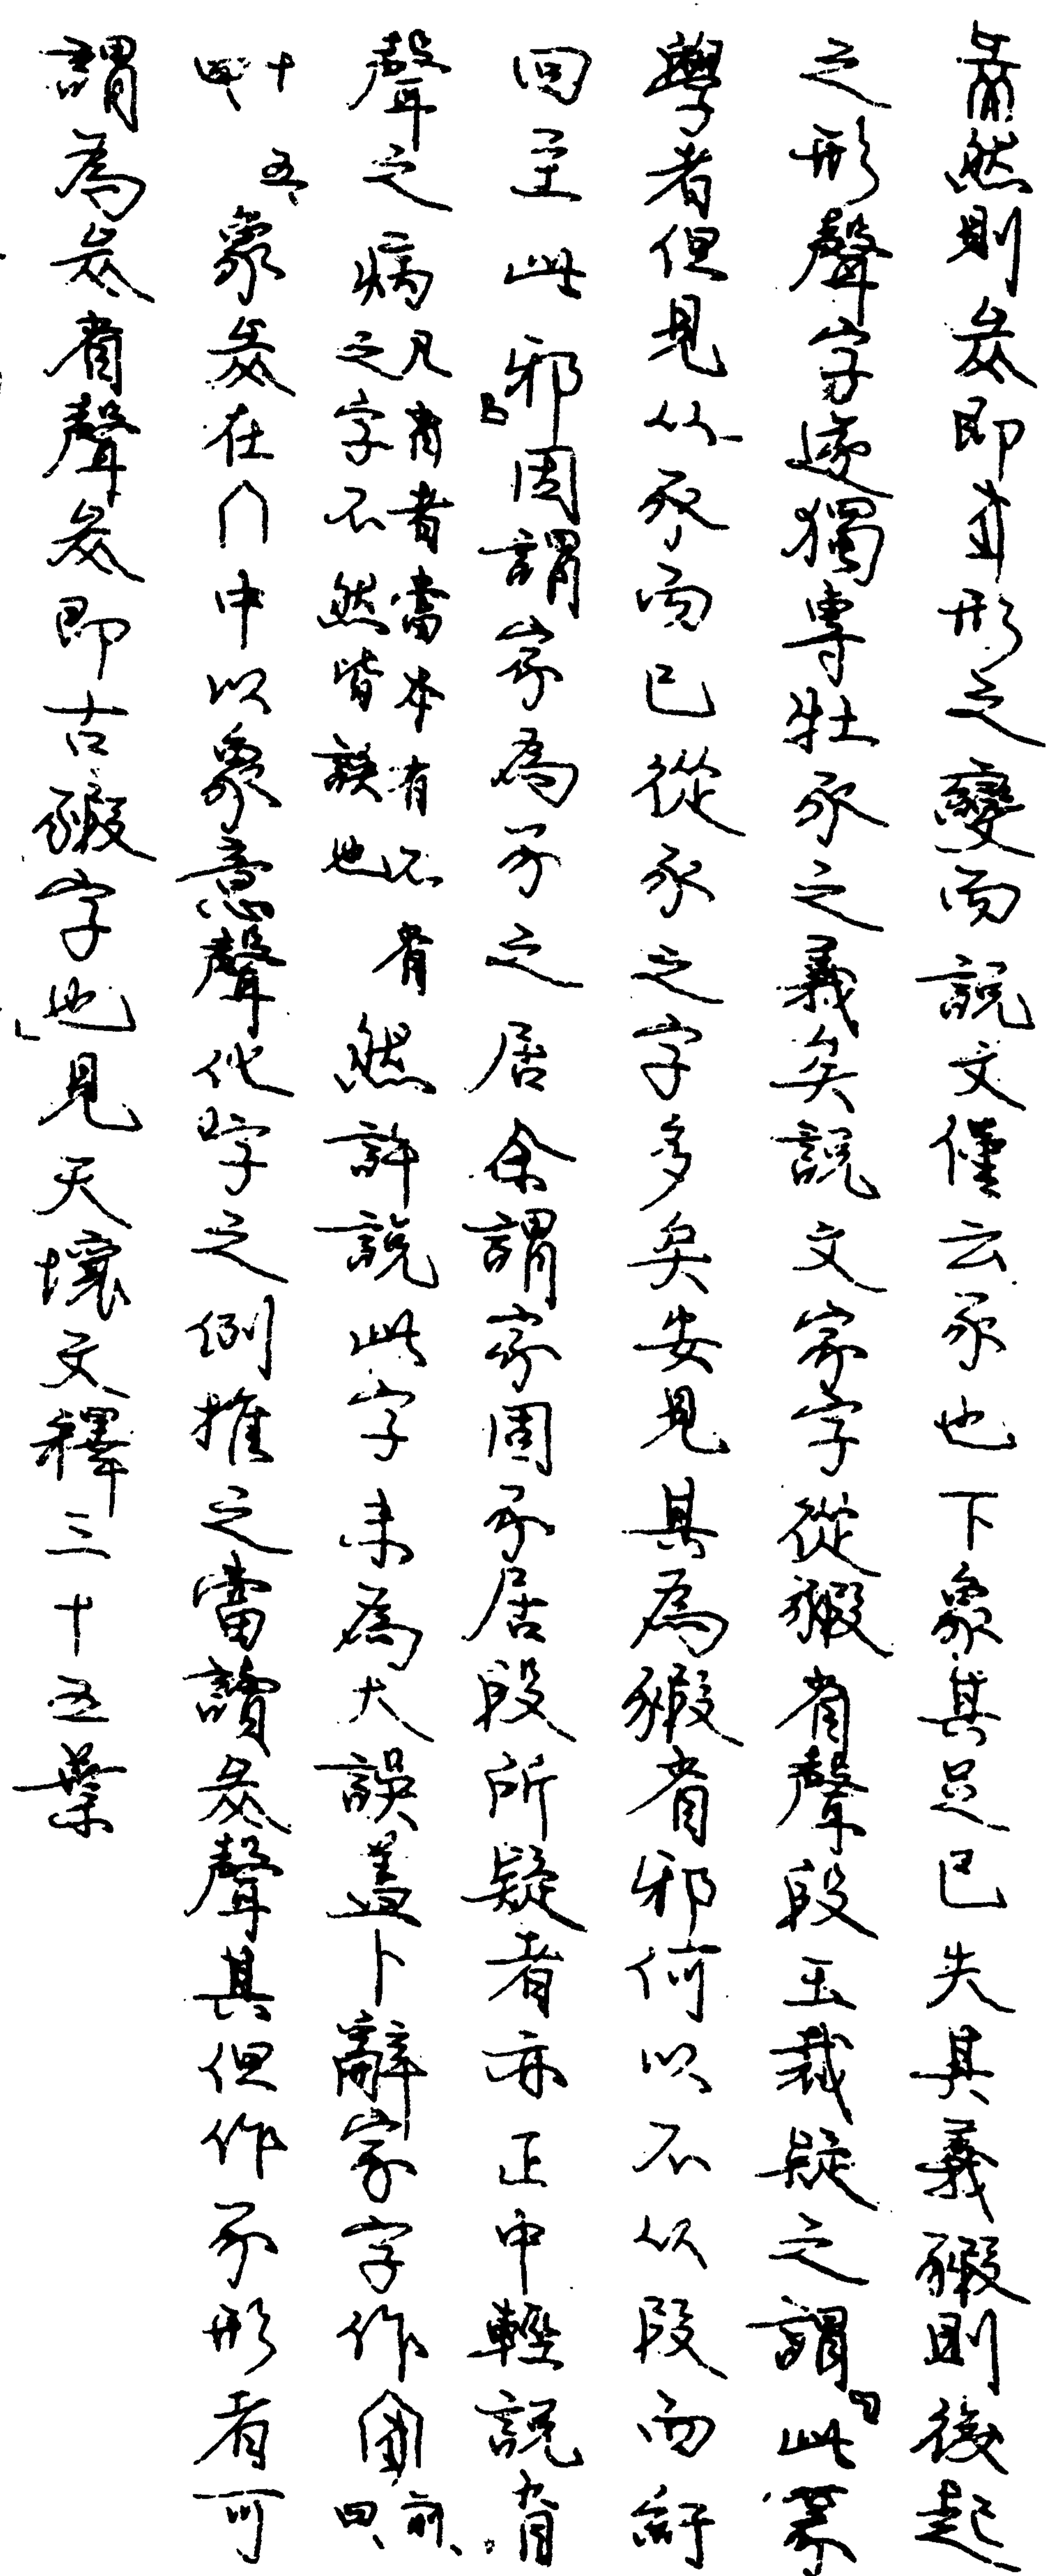 然則即形之變而說文僅云豕也下象其足已失其義豭則後起
之形聲字遂獨專牡豕之義矣說文家字從豭省聲段玉裁疑之謂「此篆
學者但見从豕而已從豕之字多矣安見其為豭省邪何以不从叚而紆
回至此邪」因謂家為豕之居余謂家固豕居段所疑者亦正中輕說省
聲之病凡省者當本有不省之字不然皆誤也然許說此字未為大誤蓋卜辭家字作前、四、
十五、象在∩中以象意聲化字之例推之當讀聲其但作豕形者可
謂為省聲即古豭字也」見天壤文釋三十五葉